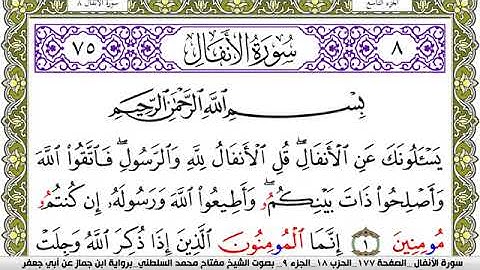 الجزء التاسع
سورة الأنفال ٨
٧٥ سُورَةُ الأَنفَالِ ٨
بِسْمِ اللَّهِ الرَّحْمَٰنِ الرَّحِيمِ
يَسْـَٔلُونَكَ عَنِ الْأَنفَالِۖ قُلِ الْأَنفَالُ لِلَّهِ وَالرَّسُولِۖ فَاتَّقُوا۟ اللَّهَ
وَأَصْلِحُوا۟ ذَاتَ بَيْنِكُمُۥۖ وَأَطِيعُوا۟ اللَّهَ وَرَسُولَهُۥٓ إِن كُنتُمُۥ
مُومِنِينَ ١ إِنَّمَا الْمُومِنُونَ الَّذِينَ إِذَا ذُكِرَ اللَّهُ وَجِلَتْ
سورة الأنفال_الصفحة ١٧٧_الحزب ١٨_الجزء ٩_ بصوت الشيخ مفتاح محمد السلطني_برواية ابن جماز عن أبي جعفر